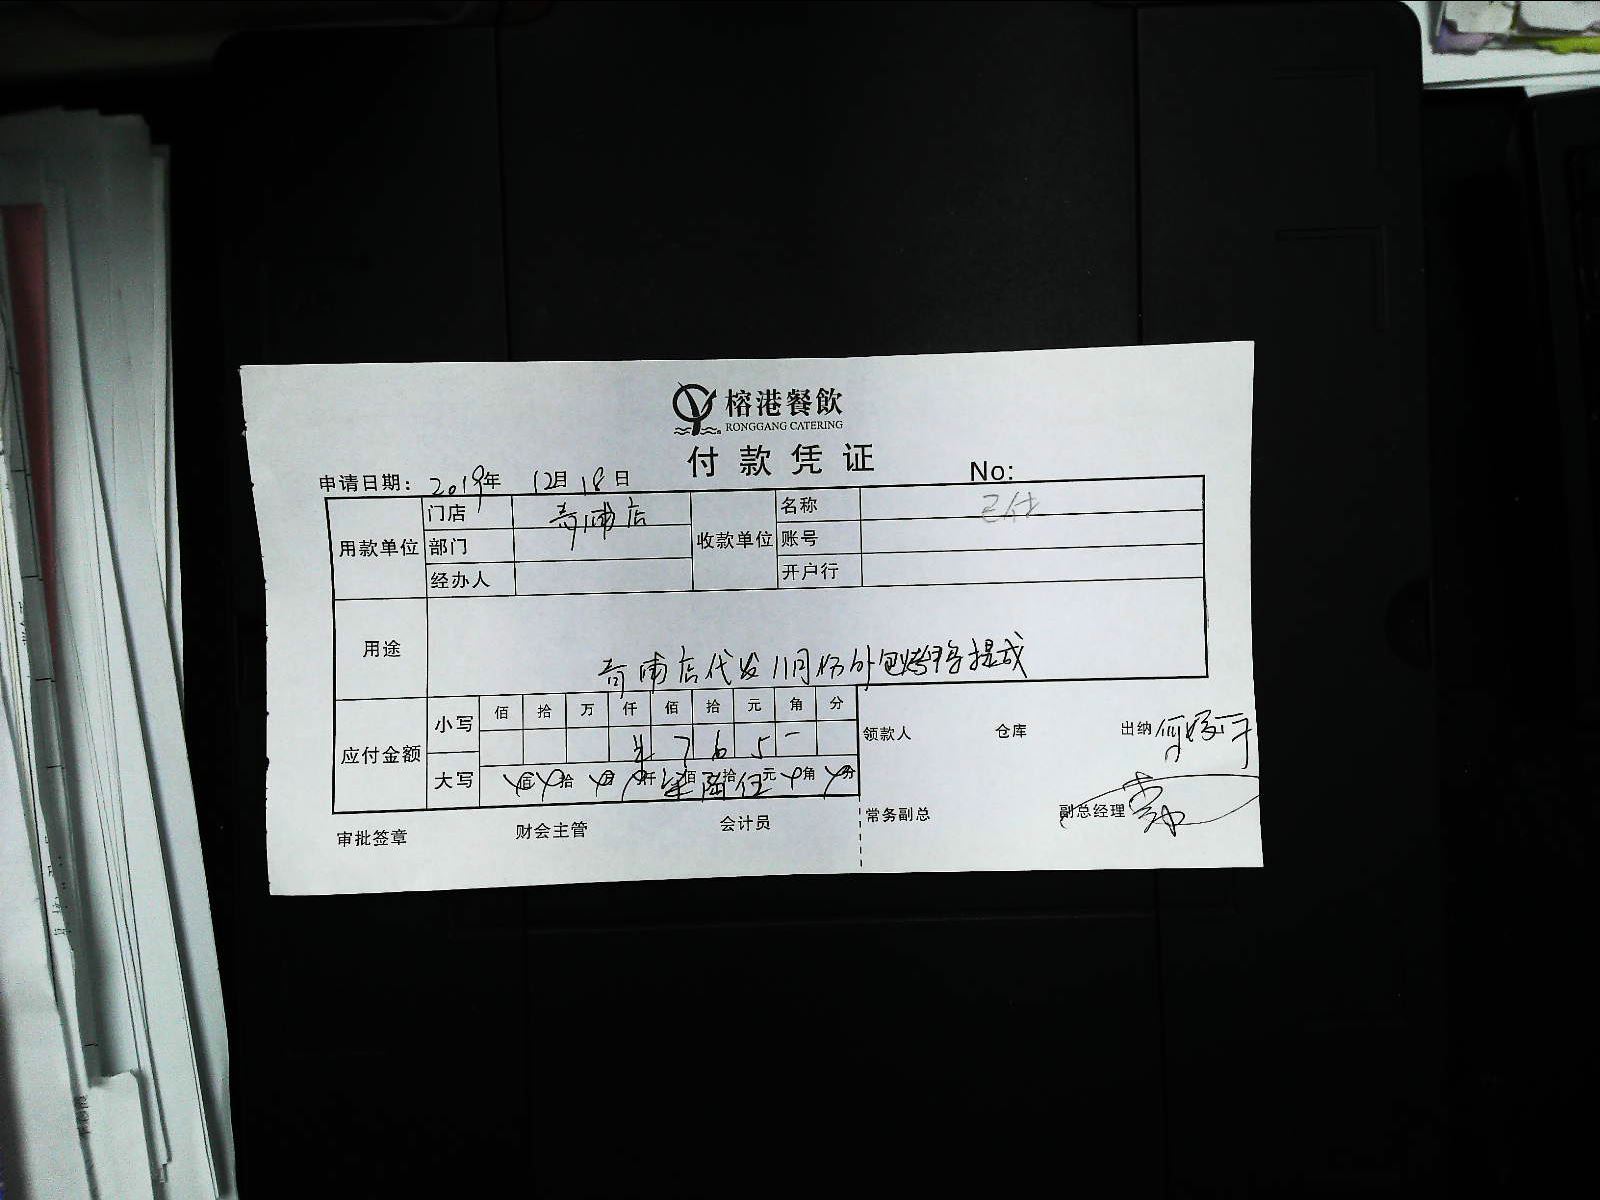 榕港餐飲
RONGGANG CATERING
付款凭证
申请日期：2019年 12月 18日 No:
用款单位 门店 奇南店 收款单位 名称 已付
部门 账号
经办人 开户行
用途 奇南店代发11月份外包烤鸭提成
应付金额 小写 佰 拾 万 仟 佰 拾 元 角 分
¥ 7 6 5 -
大写 佰 拾 万 仟 柒佰 陆拾 伍元 角 分
领款人 仓库 出纳
审批签章 财会主管 会计员 常务副总 副总经理